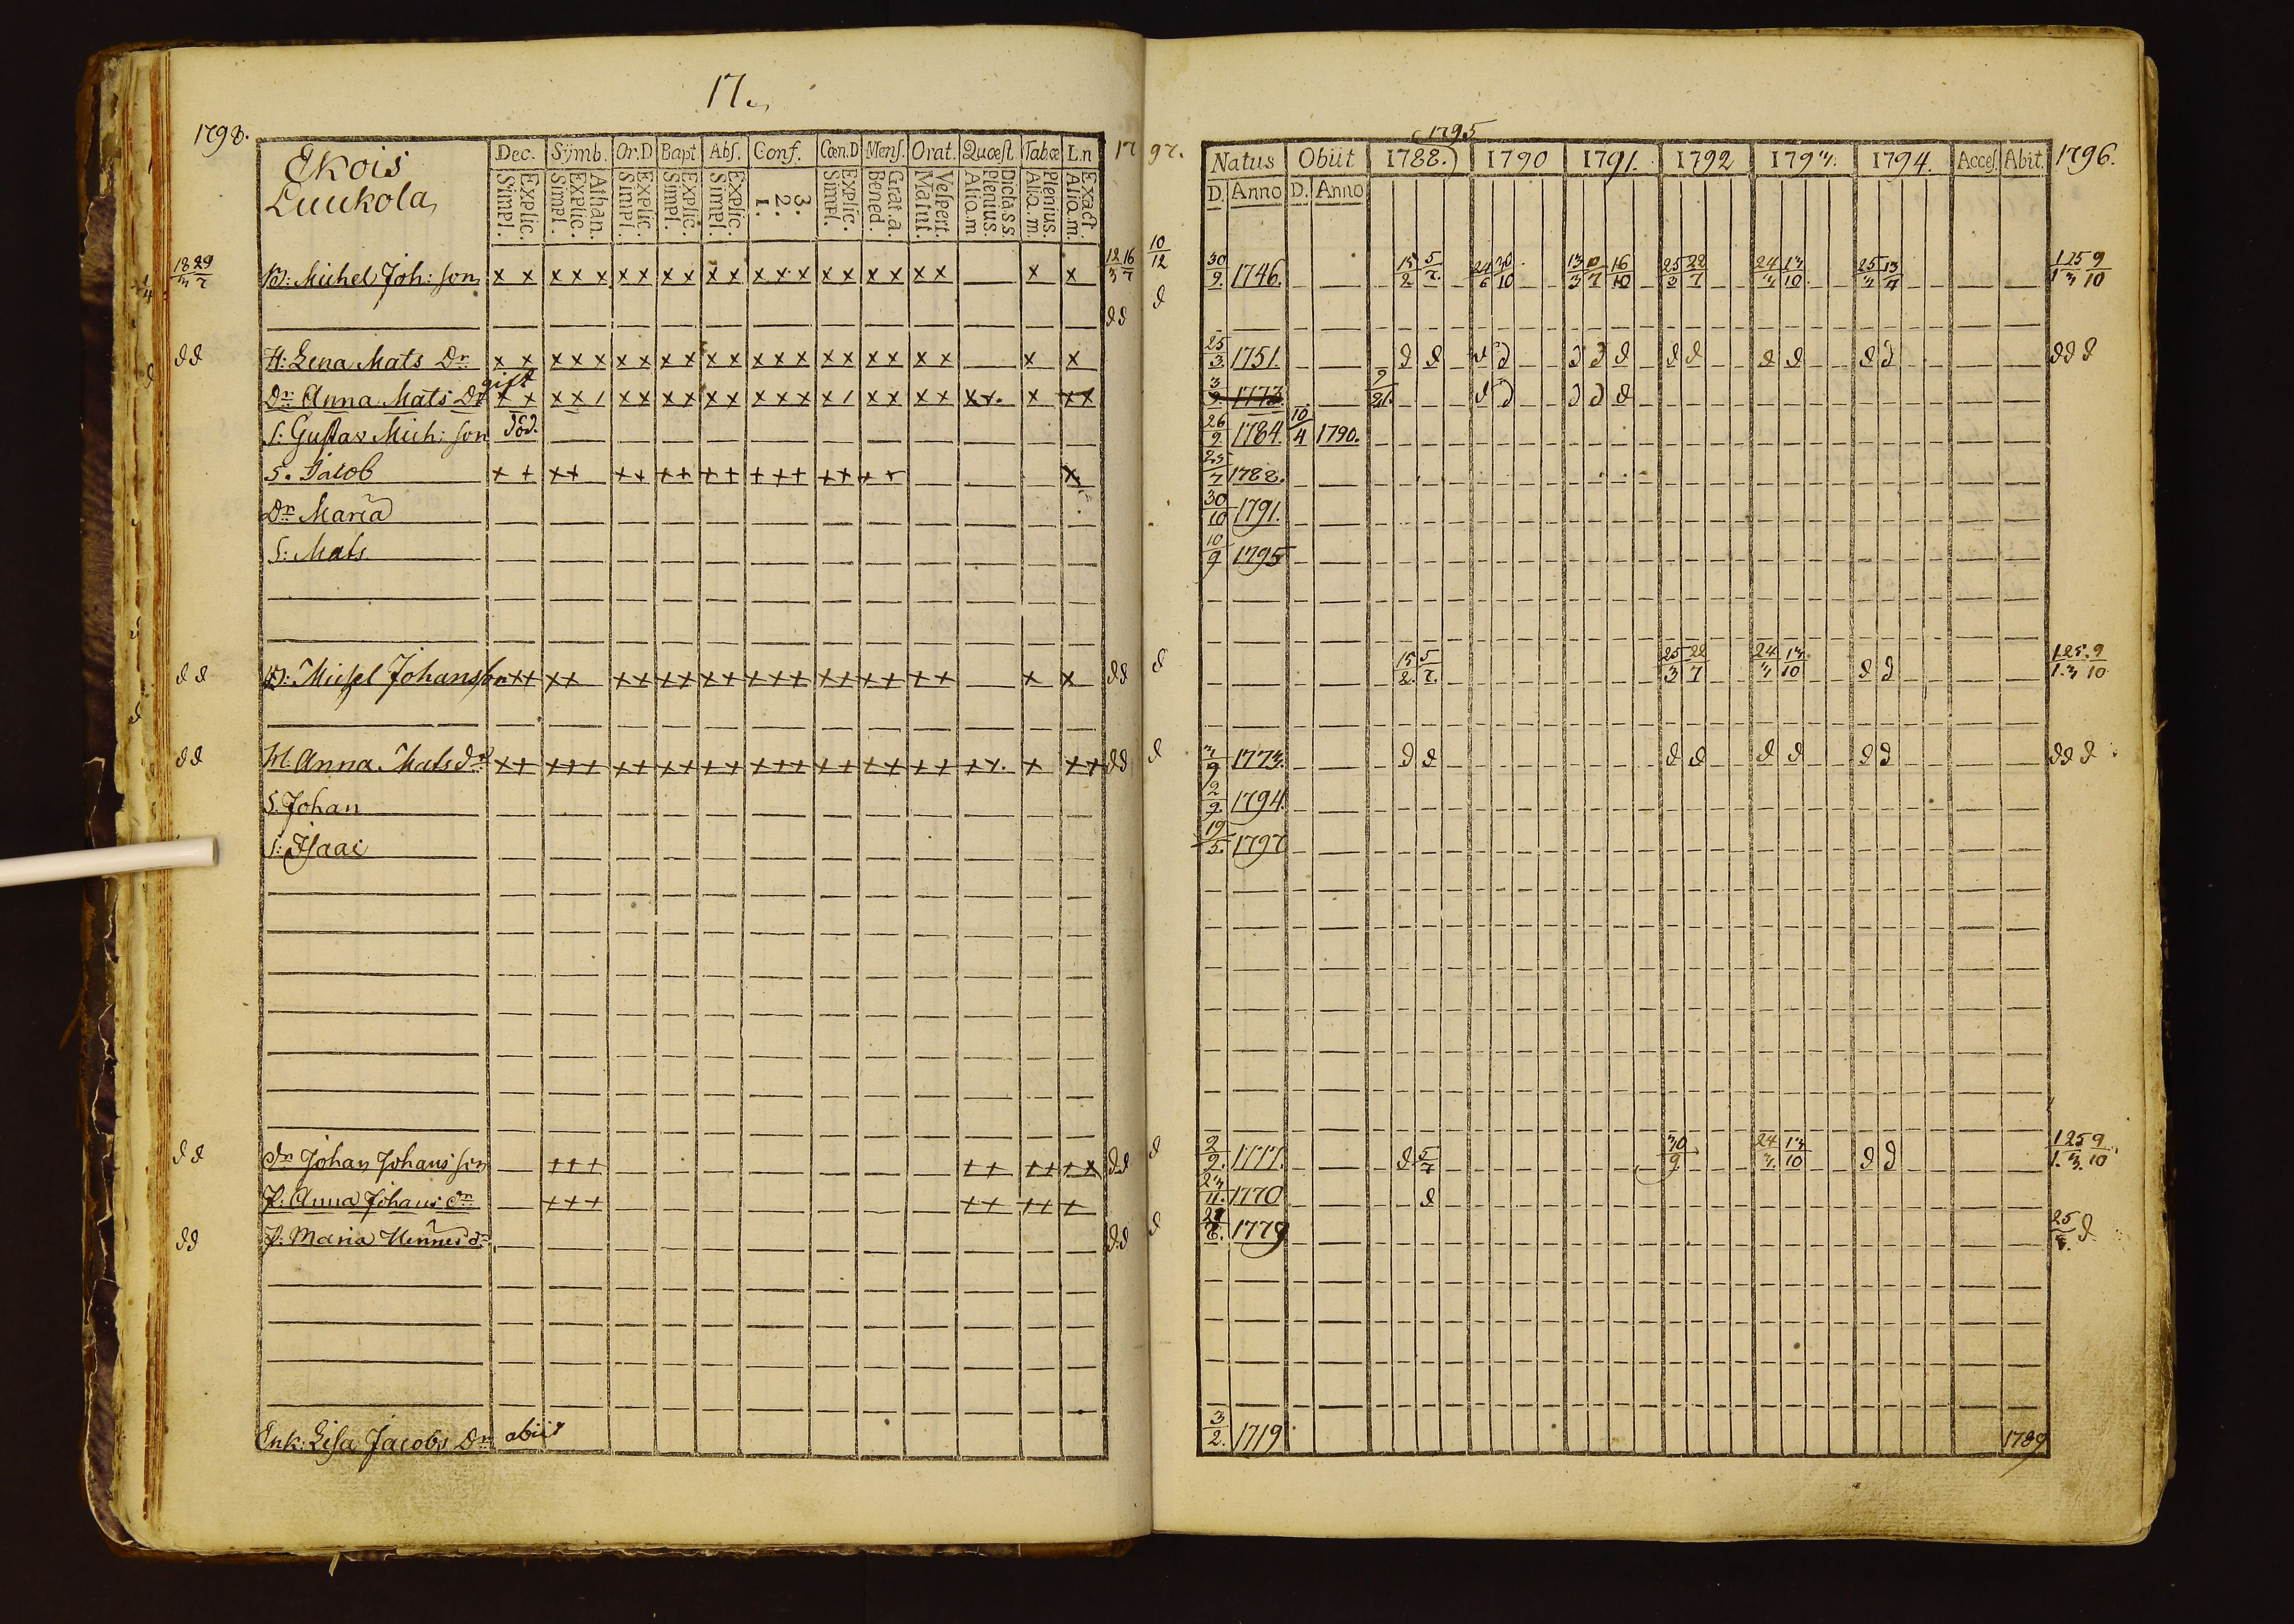 17.
1798.
Ekois
Luukola
Dec. Symb. Or.D Bapt. Abs. Conf. Cœn.D Mens. Orat. Quœst. Tab.œ L.n
Simpl. Explic. Simpl. Explic. Athan. Simpl. Explic. Simpl. Explic. Simpl. Explic. 1. 2. 3. Simpl. Explic. Bened. Grat.a. Matut. Vespert. Alio.m Plenius. Dicta.s.s. Alio.m. Plenius. Alio.m. Exact.
17 97.
1795
Natus Obiit 1788. 1790 1791. 1792 1793. 1794. Acces. Abit. 1796.
D. Anno D. Anno
18/3 29/7 B: Michel Joh: son x x x x x x x x x x x x x x x x x x x x x x 12/3 16/7 10/12 30/9. 1746. 15/2 5/7. 24/6 30/10 13/3 16/10 25/3 22/7 24/3 13/10 25/3 13/7 1/1 25/3 9/10
d d d
d d H: Lena Mats Dr x x x x x x x x x x x x x x x x x x x x x x 25/3. 1751. d d d d d d d d d d d d d d d d
Dr Anna Mats Dr gift x x x x / x x x x x x x x x x / x x x x x x. x x x 3/9. 1773 d d d d d
S: Gustav Mich: son död. 26/9. 1784. 10/4 1790.
S. Jacob + + + + + + + + + + + + + + + + + x 25/7 1788.
Dr Maria 30/10 1791.
S: Mats 10/9 1795
d d Michel Johansson + + + + + + + + + + + + + + + + + + + x x d d d 15/2. 5/7. 25/3 22/7 24/3 13/10 d d 1/1. 25/3 9/10
d d H. Anna Matsdr + + + + + + + + + + + + + + + + + + + + + x. x + + d d d 3/9 1773. d d d d d d d d d d d
S. Johan 2/9. 1794.
S: Isaac 19/5. 1797
d d Dr Johan Johansson + + + + + + + + x d d d 2/9. 1777. d 5/7 30/9 24/3. 13/10 d d 1/1. 25/3. 9/10
P: Anna Johans dr + + + + + + + + 23/11. 1770 d
d d P: Maria Hennes dr d d d 1779 25 d
Enk: Lisa Jacobs Dr abiit 3/2. 1719 1789